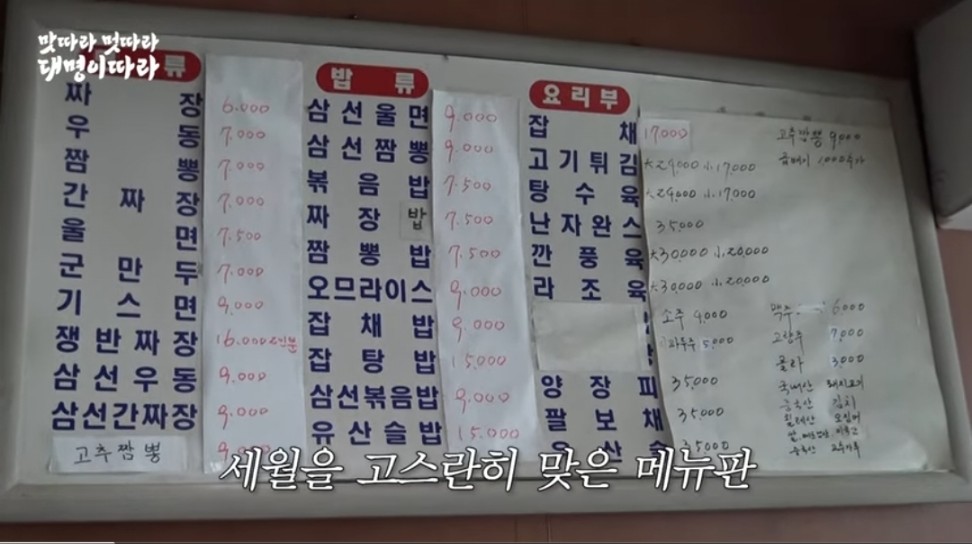 맛따라 멋따라
대명이따라
류
짜장 6.000
우동 7.000
짬뽕 7.000
간짜장 7.000
울면 7.500
군만두 7.000
기스면 9.000
쟁반짜장 16.000 2인분
삼선우동 9.000
삼선간짜장 9.000
고추짬뽕 9.000
밥류
삼선울면 9.000
삼선짬뽕 9.000
볶음밥 7.500
짜장밥 7.500
짬뽕밥 7.500
오므라이스 9.000
잡채밥 9.000
잡탕밥 15.000
삼선볶음밥 9.000
유산슬밥 15.000
요리부
잡채 17000
고기튀김 大29,000 小17000
탕수육 大29,000 小17000
난자완스 35000
깐풍육 大30,000 小20,000
라조육 大30,000 小20,000
양장피 35,000
팔보채 35,000
유산슬 35000
고추짬뽕 9,000
곱빼기 1,000추가
소주 9,000
5,000
맥주 6000
고량주 7,000
콜라 3,000
국내산 돼지고기
중국산 김치
오징어
중국산
세월을 고스란히 맞은 메뉴판